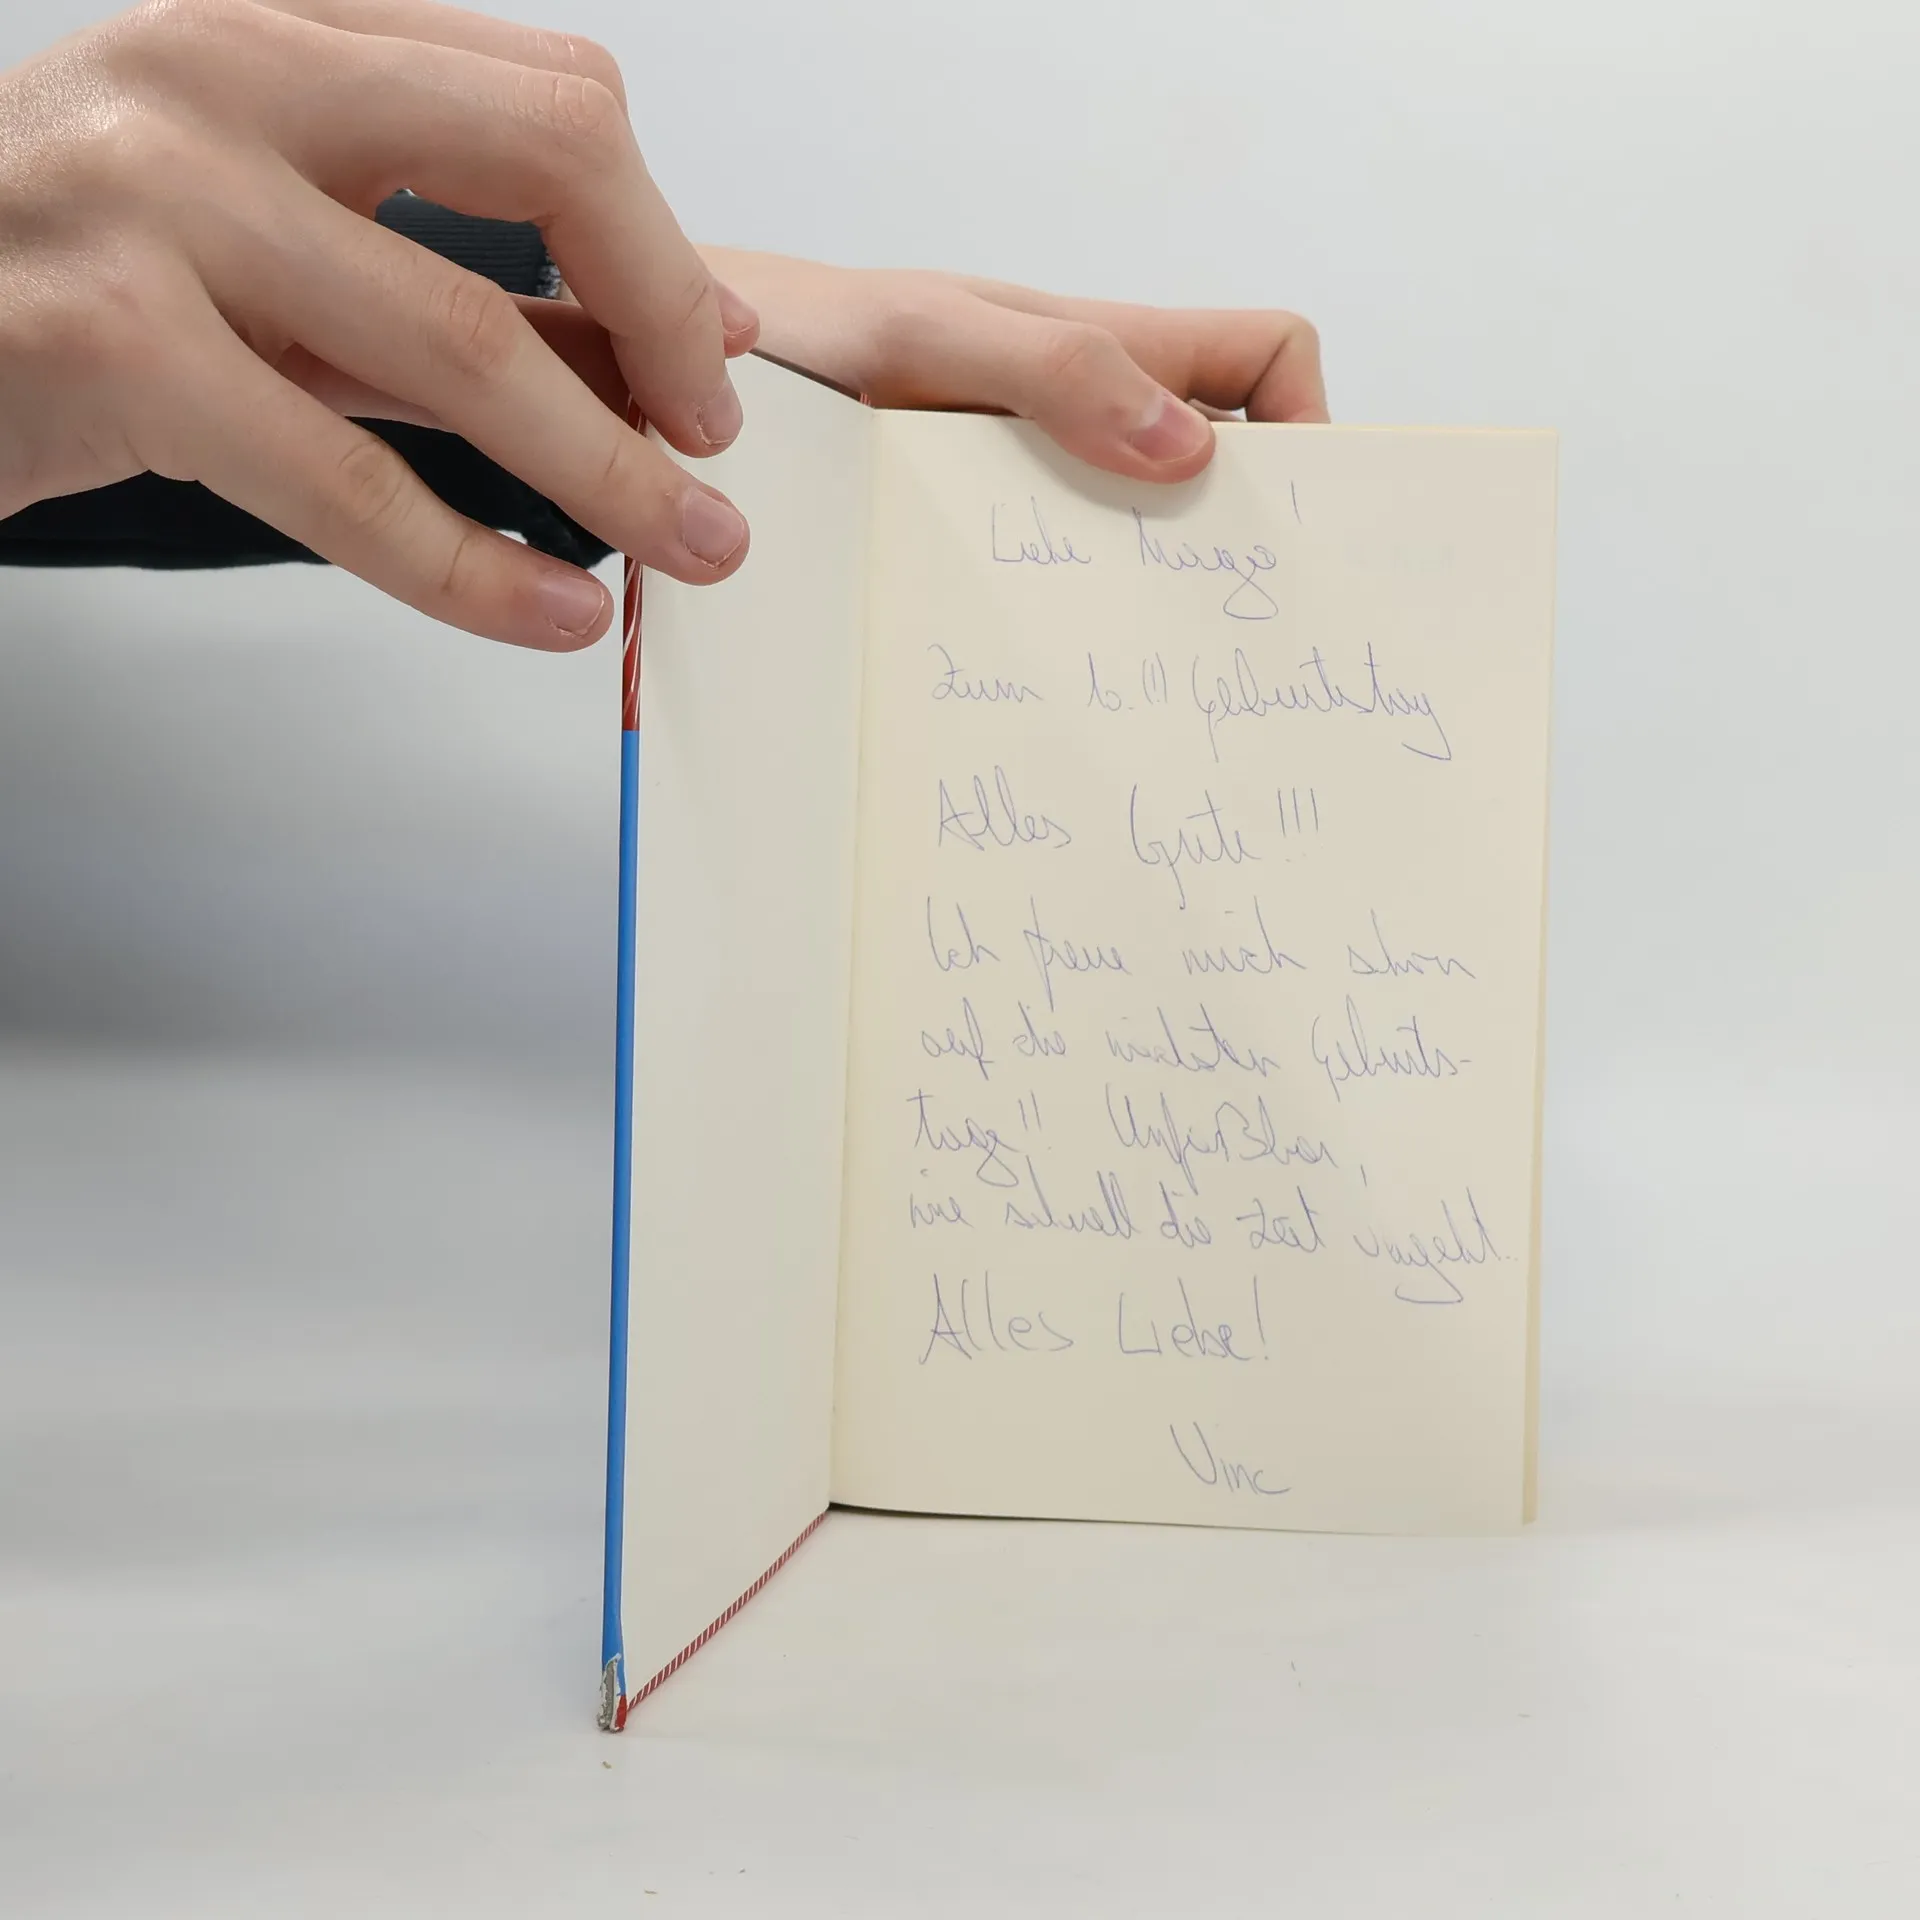 Liebe
Zum !!! Geburtstag
Alles Gute!!!
Ich freue mich schon
auf die nächsten Geburts-
tage!! Unfaßbar,
wie schnell die Zeit vergeht..
Alles Liebe!
Vinc